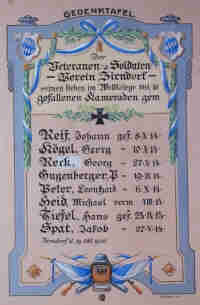 GEDENKTAFEL
Der
Veteranen u. Soldaten
Verein Zirndorf
seinen lieben im Weltkriege mit
gefallenen Kameraden gew.
Reif, Johann gef. 8.X.14
Kögel, Georg - 10.X.14
Keck, Georg - 27.X.14
Gugenberger, P. - 19.11.14
Peter, Leonhard - 6.X.14
Heid, Michael verm. VIII.14
Tiefel, Hans gef.
Spät, Jakob
Zirndorf